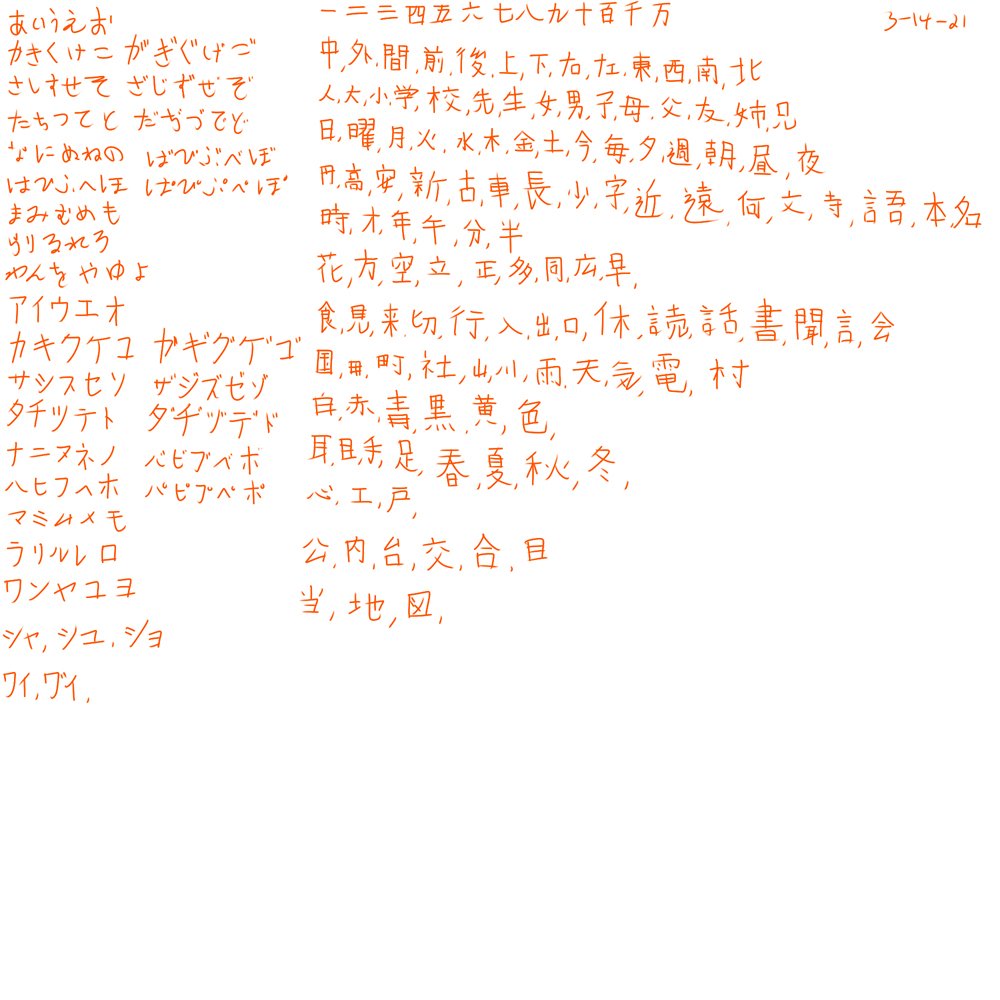 あいうえお
かきくけこ がぎぐげご
さしすせそ ざじずぜぞ
たちつてと だぢづでど
なにぬねの ばびぶべぼ
はひふへほ ぱぴぷぺぽ
まみむめも
りるれろ
わんをやゆよ
アイウエオ
カキクケコ ガギグゲゴ
サシスセソ ザジズゼゾ
タチツテト ダヂヅデド
ナニヌネノ バビブベボ
ハヒフヘホ パピプペポ
マミムメモ
ラリルレロ
ワンヤユヨ
シャ,シュ.ショ
ワイ,ヴイ,
一二三四五六七八九十百千万
3-14-21
中,外.間.前.後.上.下.右.左.東.西.南.北
人.大.小.学.校.先.生.女.男.子.母.父.友.姉.兄
日.曜.月.火.水.木.金.土.今.毎.夕.週.朝.昼.夜
円.高,安,新.古.車.長,少.字.近.遠.何.文.寺,語.本,名
時,才.年,午,分,半
花,方,空,立,正,多,同,広.早,
食,見,来,切,行,入,出,口,休,読,話,書,聞,言,会
国,毎,町,社,山,川,雨.天,気,電,村
白,赤,青,黒,黄,色,
耳,目,手,足,春,夏,秋,冬,
心,工,戸,
公,内,台,交,合,目
当,地,図,